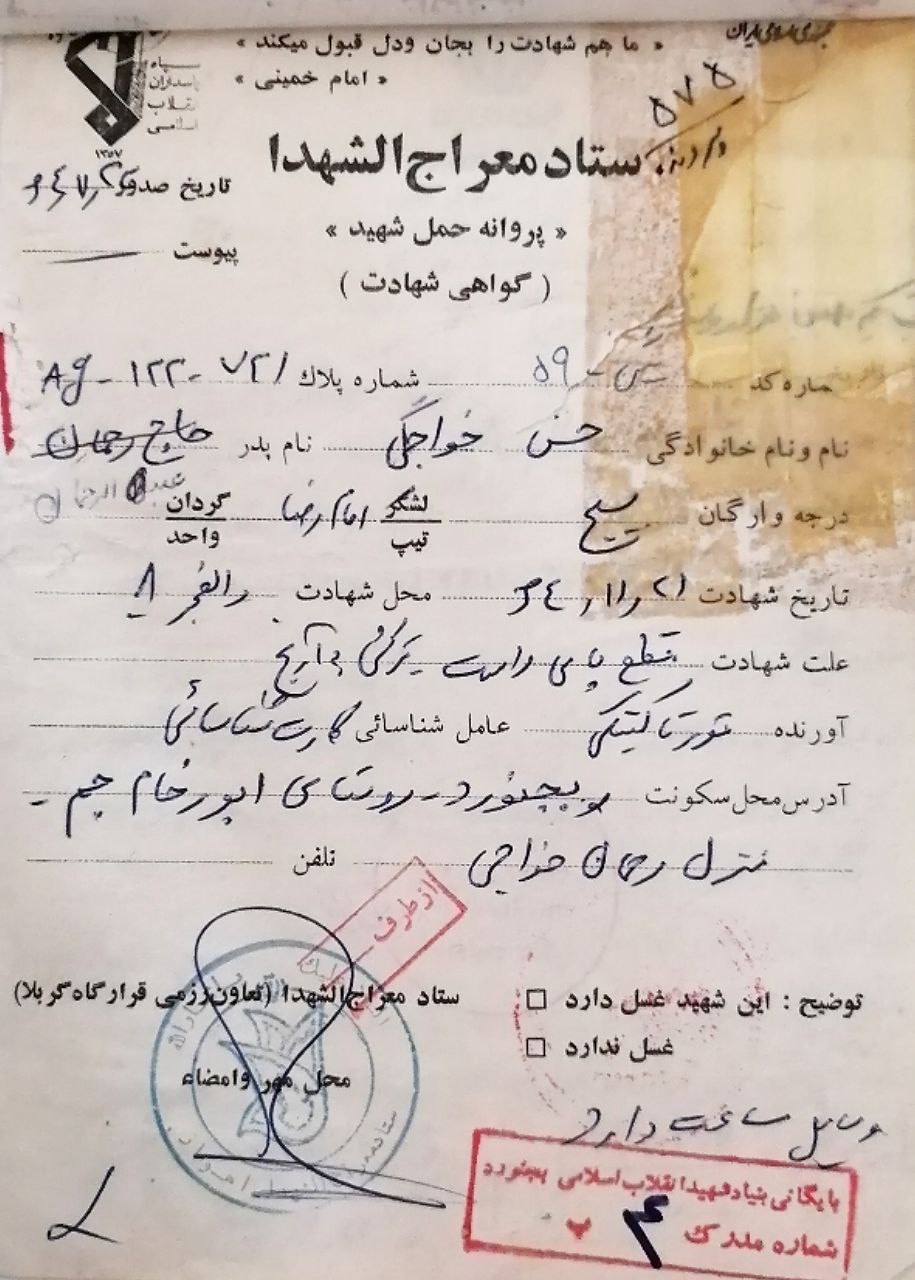 جمهوری اسلامی ایران
« ما هم شهادت را بجان ودل قبول میکند »
« امام خمینی »
سپاه
پاسداران
انقلاب
اسلامی
۱۳۵۷
۵۷۵
ستاد معراج الشهدا
تاریخ صدور
« پروانه حمل شهید »
پیوست
( گواهی شهادت )
شماره کد ۵۹ شماره پلاك ۷۲۱ - ۱۲۲ - Ag
نام ونام خانوادگی حسن خواجگی نام پدر حاج رحمان
عبدالرحمان
درجه وارگان بسیج لشگر امام رضا گردان
تیپ واحد
تاریخ شهادت ۲۱ , ۱۱ , ۶٤ محل شهادت والفجر ۸
علت شهادت قطع پای راست ترکش
آورنده عامل شناسائی کارت شناسائی
آدرس محل سکونت بجنورد - روستای
منزل رحمان خواجی تلفن
از طرف
توضیح : این شهید غسل دارد □
ستاد معراج الشهدا (تعاون رزمی قرارگاه کربلا)
غسل ندارد □
محل مهر وامضاء
وسایل ساعت دارد
بایگانی بنیاد شهید انقلاب اسلامی بجنورد
شماره مدرك ۴